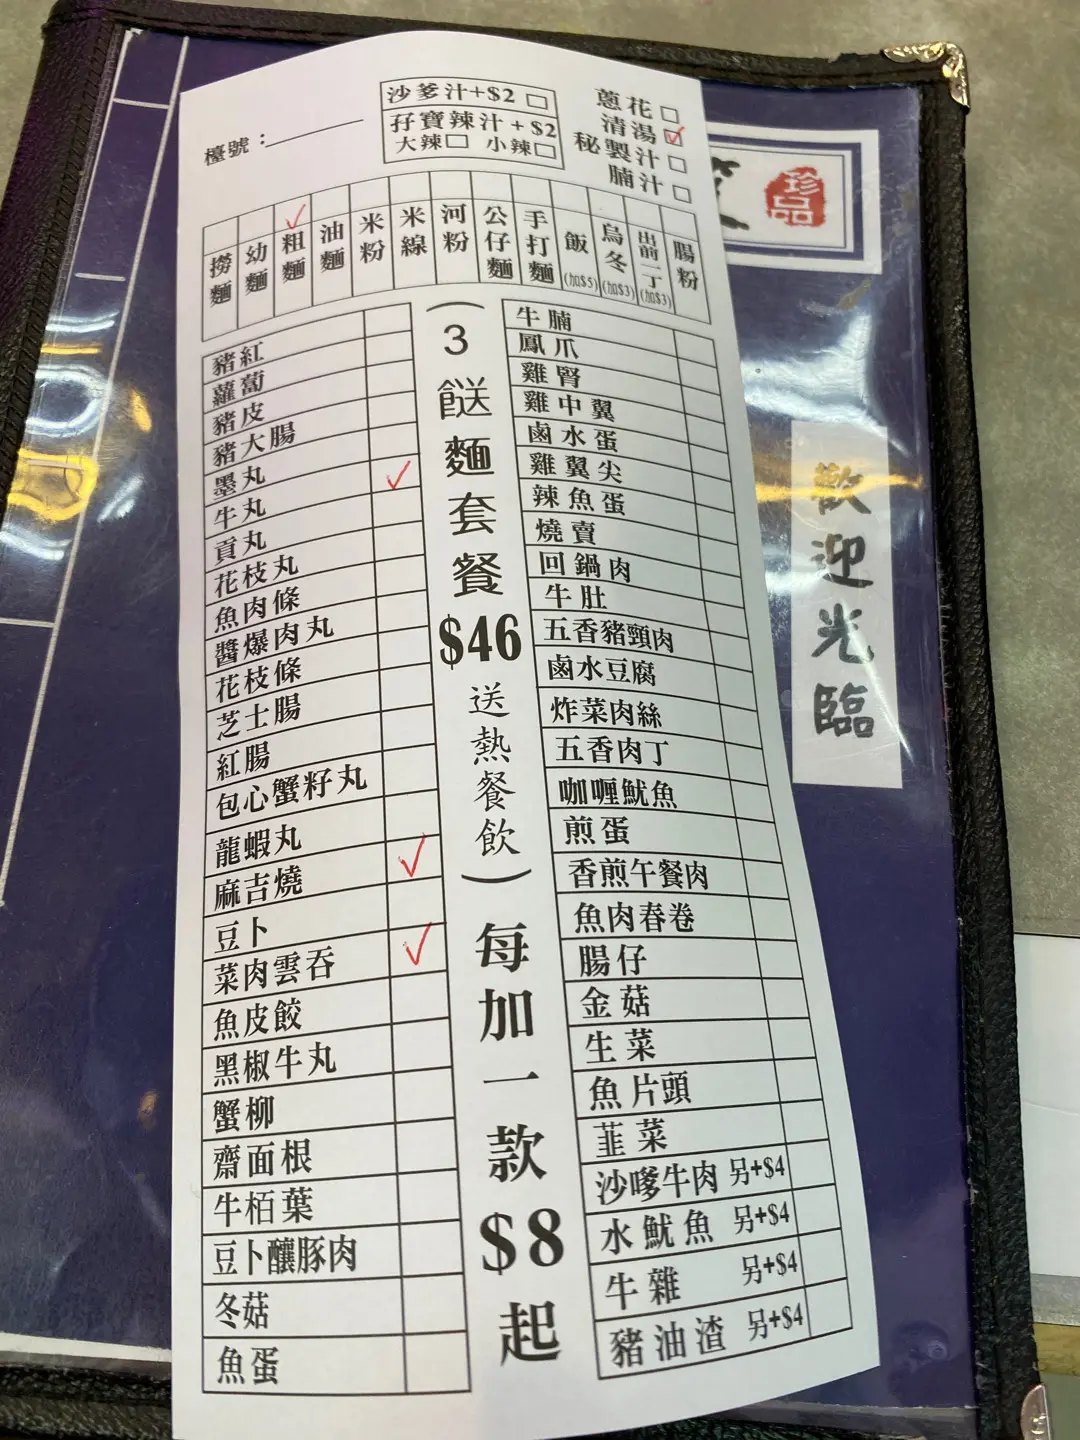 檯號：
沙爹汁+$2 □
孖寶辣汁+$2
大辣□ 小辣□
蔥花□
清湯☑
秘製汁□
腩汁□
撈麵
幼麵
粗麵 ✓
油麵
米粉
米線
河粉
公仔麵
手打麵
飯(加$5)
烏冬(加$3)
出前一丁(加$3)
腸粉
豬紅
蘿蔔
豬皮
豬大腸
墨丸 ✓
牛丸
貢丸
花枝丸
魚肉條
醬爆肉丸
花枝條
芝士腸
紅腸
包心蟹籽丸
龍蝦丸
麻吉燒 ✓
豆卜
菜肉雲吞 ✓
魚皮餃
黑椒牛丸
蟹柳
齋面根
牛栢葉
豆卜釀豚肉
冬菇
魚蛋
(3餸麵套餐$46送熱餐飲)每加一款$8起
牛腩
鳳爪
雞腎
雞中翼
鹵水蛋
雞翼尖
辣魚蛋
燒賣
回鍋肉
牛肚
五香豬頸肉
鹵水豆腐
炸菜肉絲
五香肉丁
咖喱魷魚
煎蛋
香煎午餐肉
魚肉春卷
腸仔
金菇
生菜
魚片頭
韮菜
沙嗲牛肉 另+$4
水魷魚 另+$4
牛雜 另+$4
豬油渣 另+$4
珍品
歡迎光臨